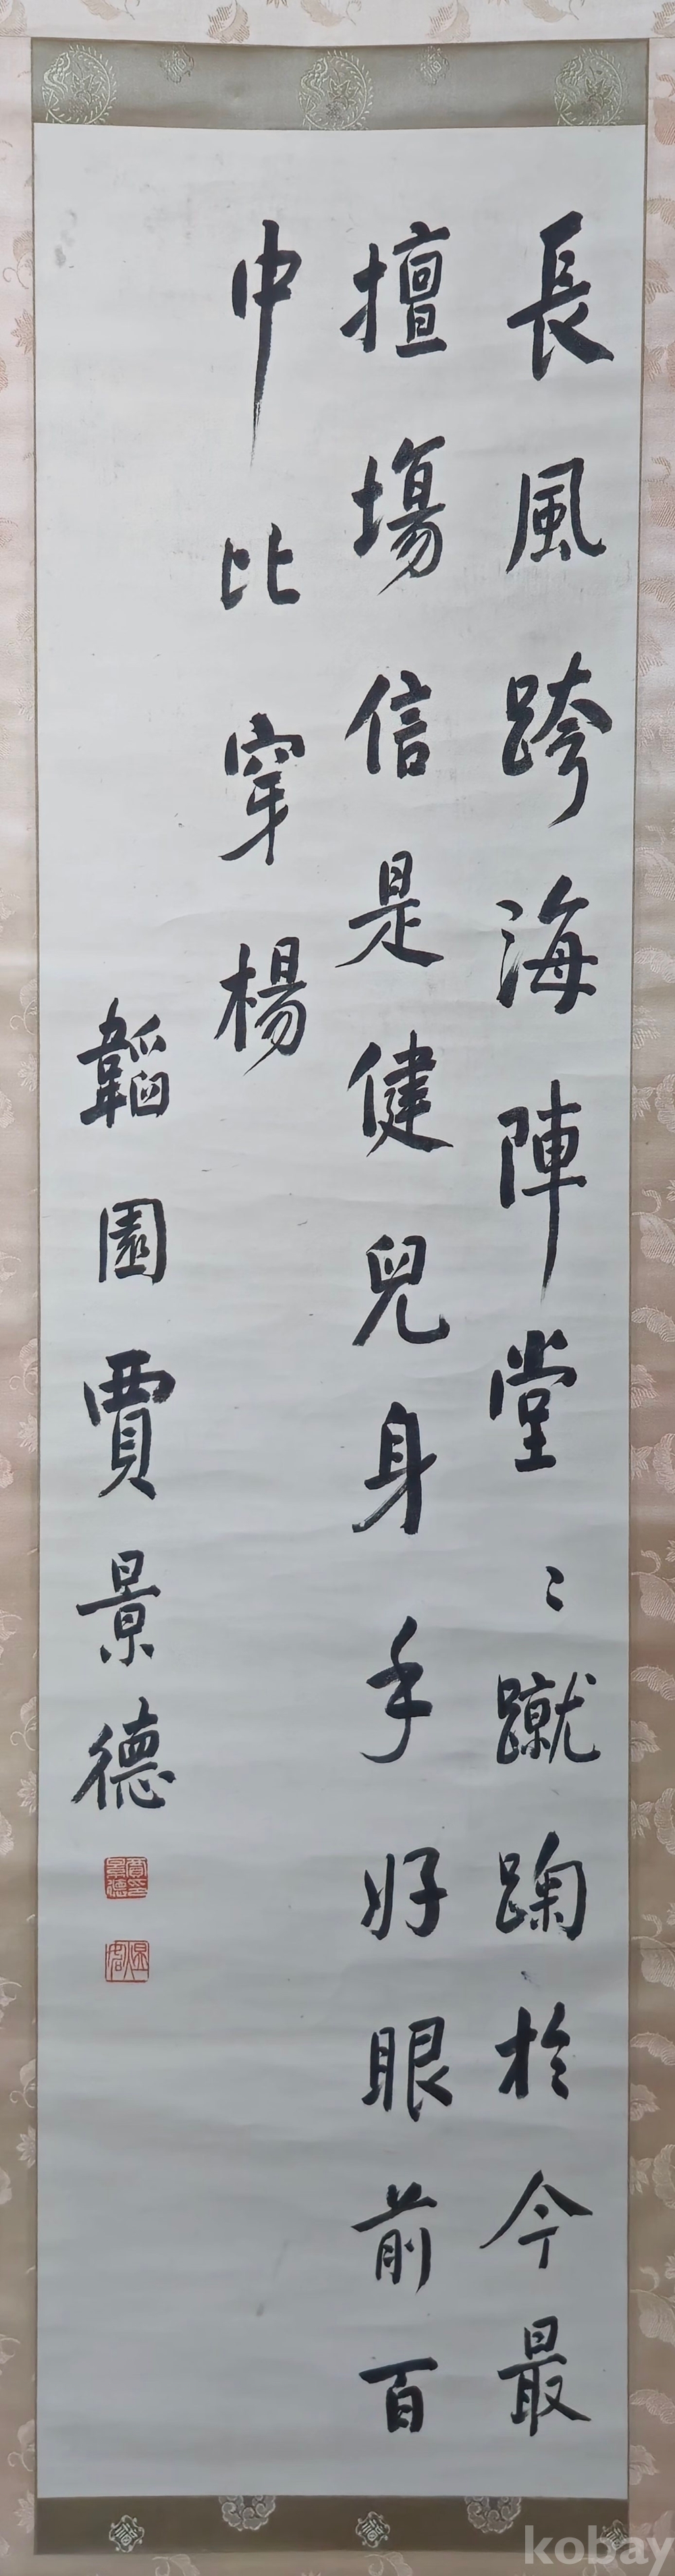 長風跨海陣堂〻蹴踘於今最
擅塲信是健兒身手好眼前百
中比穿楊
韜園賈景德
賈景德印
kobay